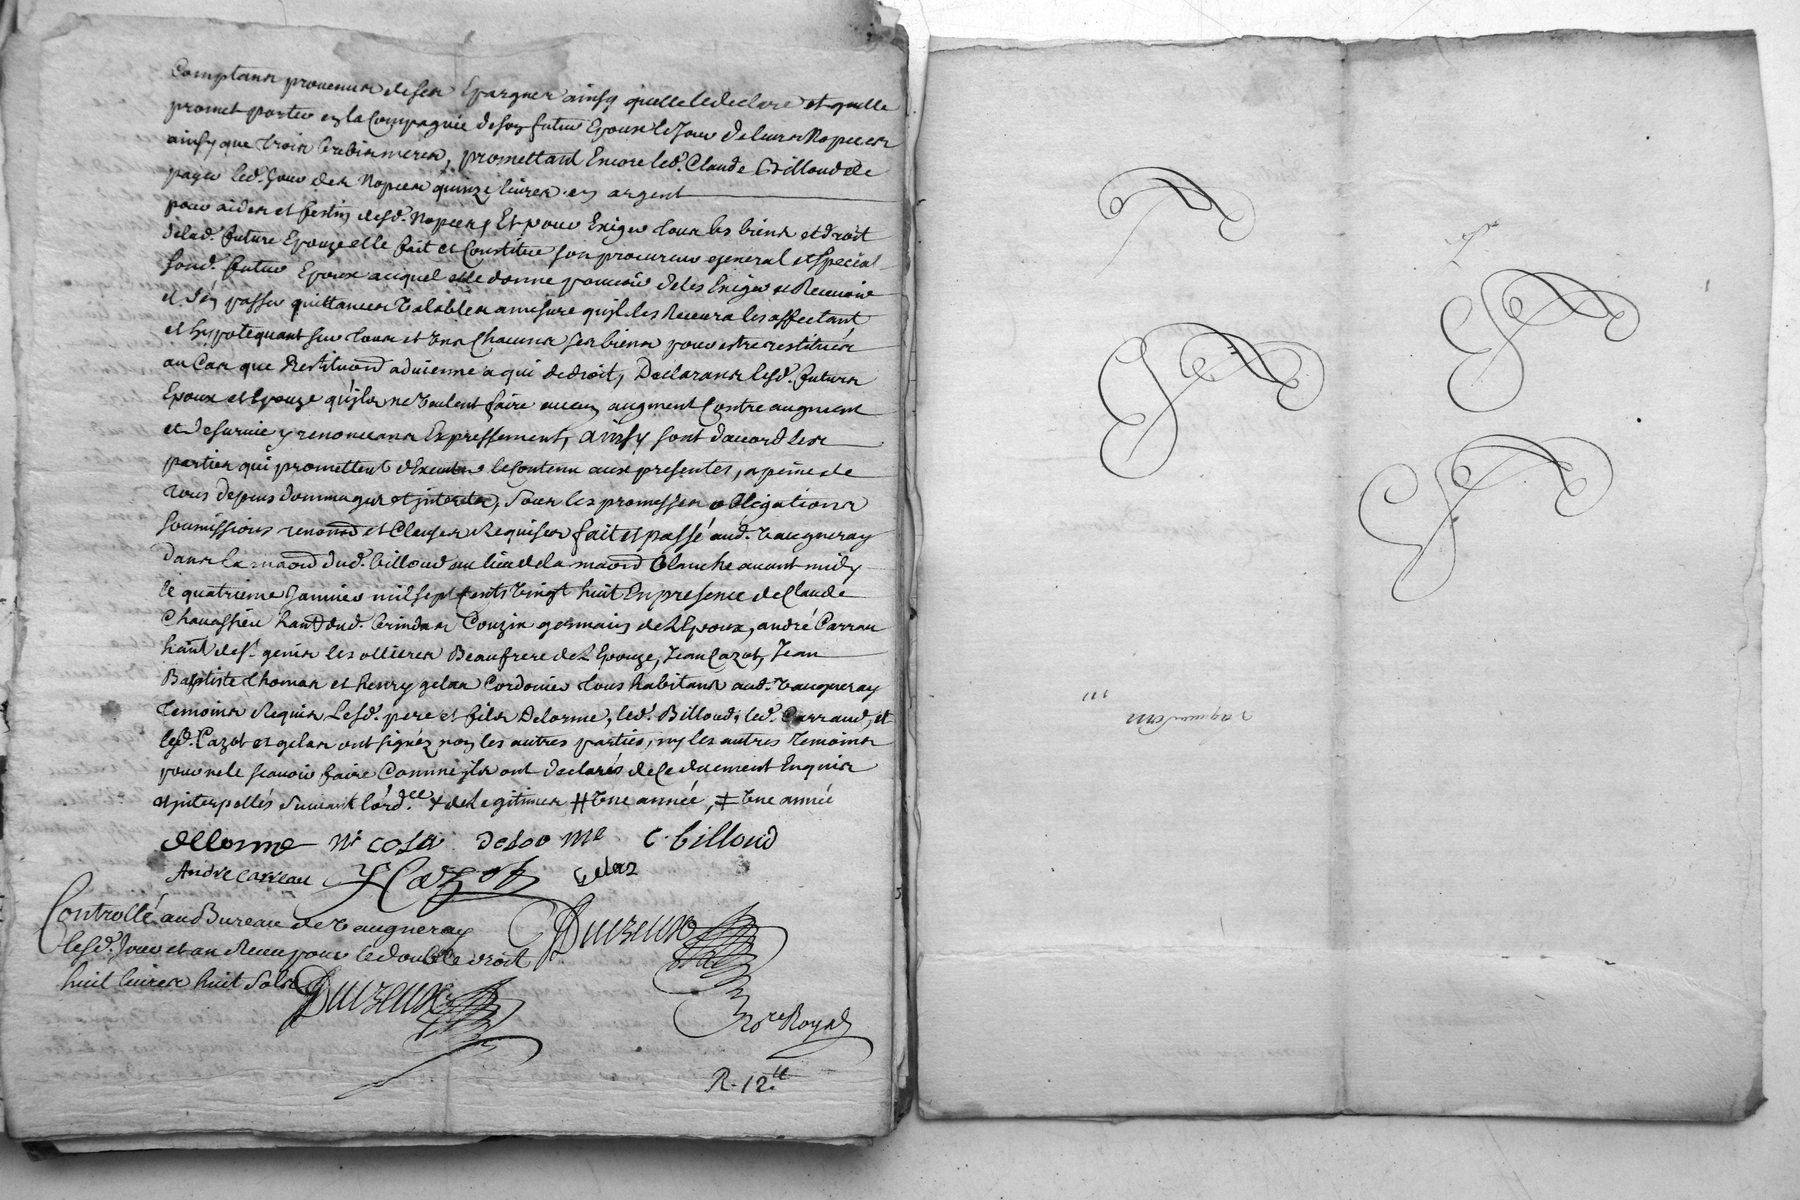 Comptans provenus de ses Epargnes ainsy quelle le declare et quelle
promet porter en la Compagnie de son futur Epoux le Jour de leurs Nopces
ainsy que trois brebis meres, promettant Encore led. Claude Billoud de
payer led. Jour des Nopces quinze livres en argent
pour aider et festin desd. Nopces, Et pour Exiger tous les biens et droit
delad. future Epouze elle fait et Constitue son procureur general et special
sond. futur Epoux auquel elle donne pouvoir de les Exiger et Recevoir
et d'en passer quittances Valables a mesure qu'il les Recevra les affectant
et hypotequant sur tous et Uns Chacuns ses biens pour estre restitués
au Cas que Restituon advienne a qui de droit, Declarans lesd. futurs
Epoux et Epouze qu'ils ne Veulent faire aucun augment Contre augment
et de survie y renoncans Expressement, ainsy sont d'accord les
parties qui promettent d'Executer le Contenu aux presentes, a peine de
tous depens dommages et interets, sous les promesses obligations
soumissions renonons et Clauses Requises fait et passé aud. Vaugneray
dans la maon dud. billoud au lieu de la maon blanche avant midy
le quatrieme Janvier mil sept cents Vingt huit En presence de Claude
Chavassieu hant dud. brindas Couzin germain de L'Epoux, andré Carrau
hant de St. genis les ollieres Beaufrere de L'Epouze, Jean Cazot, Jean
Baptiste thomas et henry gelas Cordonier tous habitans aud. Vaugneray
temoins Requis Lesd. pere et fils Delorme, led. Billoud, led. Carraud, et
lesd. Cazot et gelas ont signéz non les autres parties, ny les autres temoins
pour ne le scavoir faire Comme ils ont declarés de Ce duement Enquis
et interpellés suivant l'ord.ce + de Legitimes # Une année, ‡ Une année
dellorme Ni colas delorme C. billoud
Andre carreau J Cazot Gelas
Controllé au Bureau de Vaugneray
lesd. Jour et an Receu pour le double droit
huit livres huit sols
No.re Royal
R. 12 tt